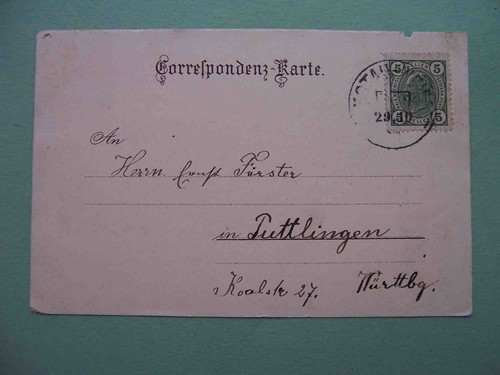 Correspondenz-Karte.
5 5
5 5
29
An
Herrn Ernst Förster
in Tuttlingen
Württbg.